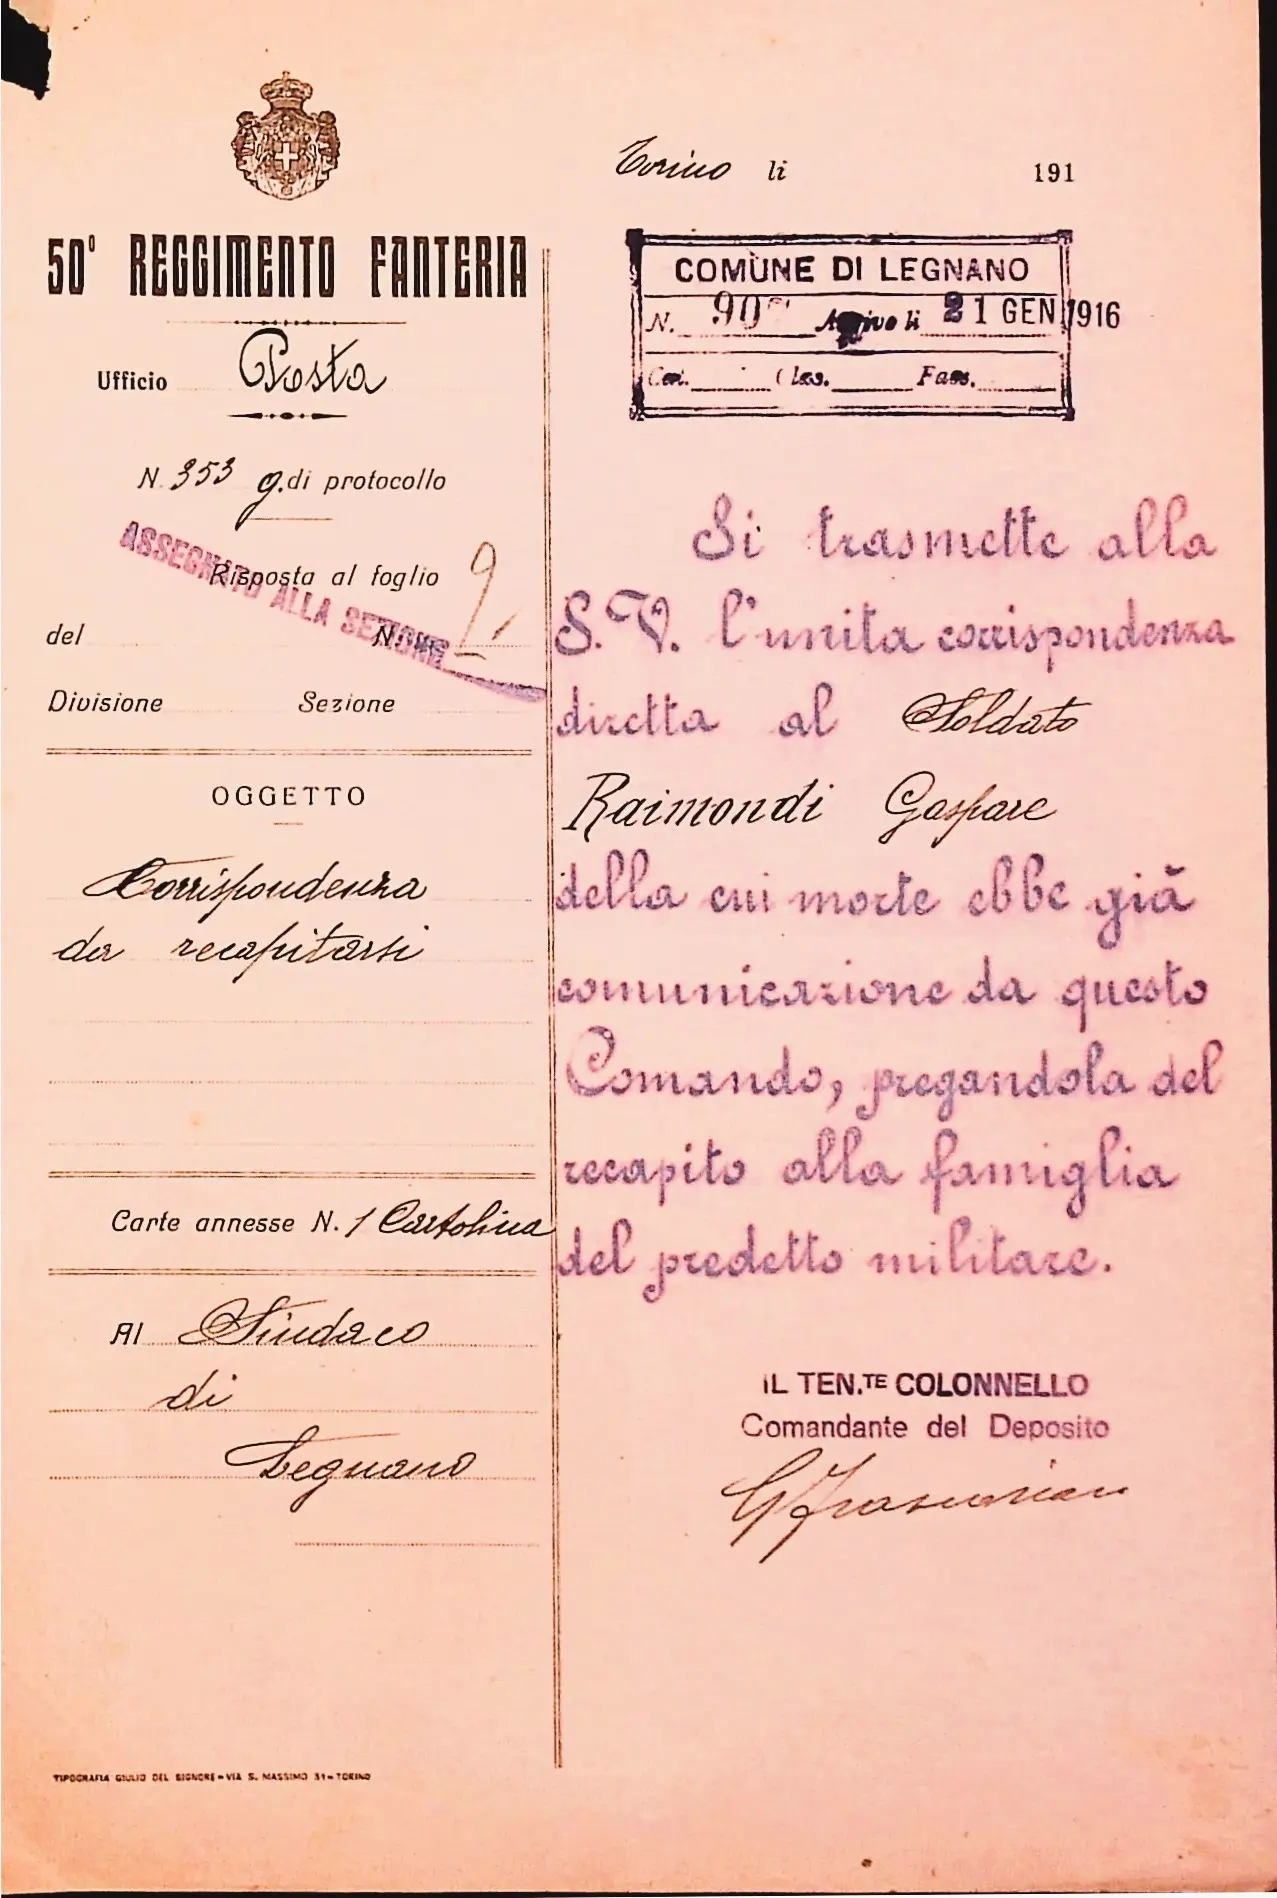 50° REGGIMENTO FANTERIA
Ufficio Posta
N. 353 g. di protocollo
ASSEGNATO ALLA SEZIONE
Risposta al foglio
del N.
9
Divisione Sezione
OGGETTO
Corrispondenza
da recapitarsi
Carte annesse N. 1 Cartolina
Al Sindaco
di
Legnano
TIPOGRAFIA GIULIO DEL SIGNORE - VIA S. MASSIMO 31 - TORINO
Torino li 191
COMUNE DI LEGNANO
N. Arrivo li 21 GEN 1916
Cat. Clas. Fasc.
Si trasmette alla
S.V. l'unita corrispondenza
diretta al Soldato
Raimondi Gaspare
della cui morte ebbe già
comunicazione da questo
Comando, pregandola del
recapito alla famiglia
del predetto militare.
IL TEN.TE COLONNELLO
Comandante del Deposito